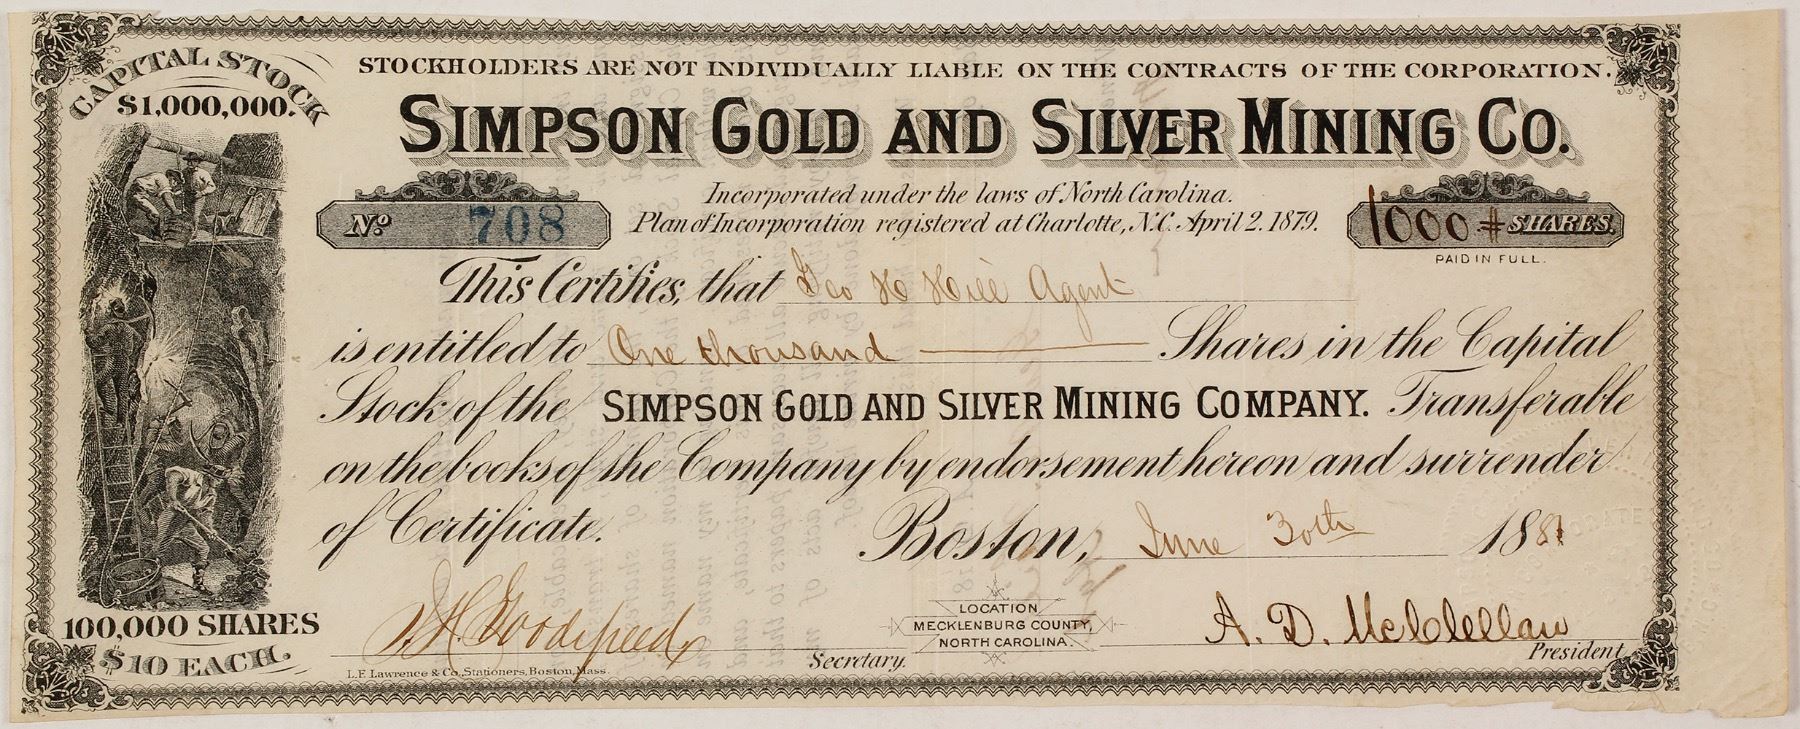 CAPITAL STOCK
$1,000,000.
STOCKHOLDERS ARE NOT INDIVIDUALLY LIABLE ON THE CONTRACTS OF THE CORPORATION.
SIMPSON GOLD AND SILVER MINING CO.
Incorporated under the laws of North Carolina.
Plan of Incorporation registered at Charlotte, N.C. April 2. 1879.
No 708
1000 # SHARES.
PAID IN FULL.
This Certifies, that Geo H Hill Agent
is entitled to One thousand Shares in the Capital
Stock of the SIMPSON GOLD AND SILVER MINING COMPANY. Transferable
on the books of the Company by endorsement hereon and surrender
of Certificate. Boston, June 30th 1881
100,000 SHARES
$10 EACH.
Goodspeed
Secretary.
LOCATION
MECKLENBURG COUNTY,
NORTH CAROLINA.
A. D. McClellan
President
L.F. Lawrence & Co, Stationers, Boston, Mass.